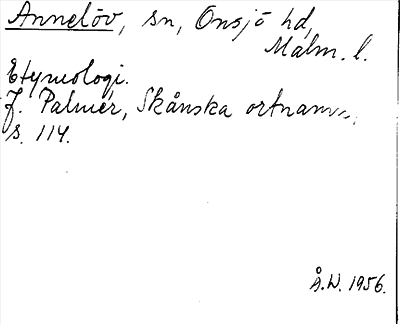 Annelöv, sn, Onsjö hd,
Malm. l.
Etymologi.
J. Palmér, Skånska ortnamn,
s. 114.
Å.W. 1956.